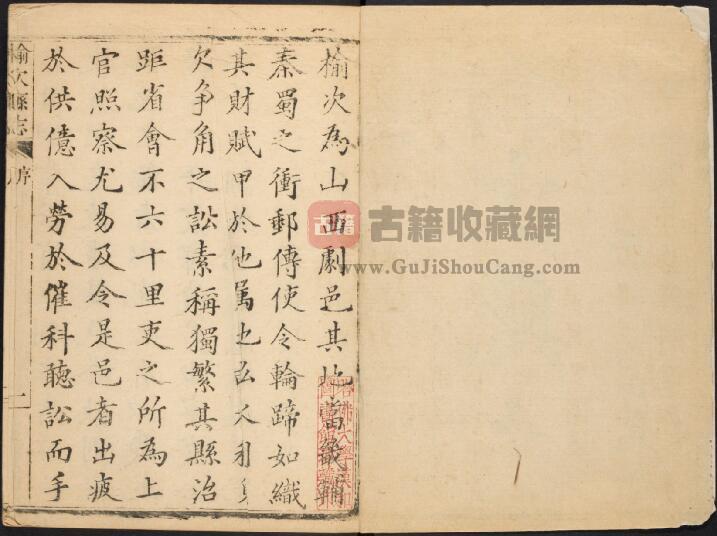 榆次為山西劇邑其地當畿輔
秦蜀之衝郵傳使令輪蹄如織
其財賦甲於他屬也
欠爭角之訟素稱獨繁其縣治
距省會不六十里吏之所為上
官照察尤易及令是邑者出疲
於供億入勞於催科聽訟而手
榆次縣志
序
古籍
古籍收藏網
www.GuJiShouCang.com